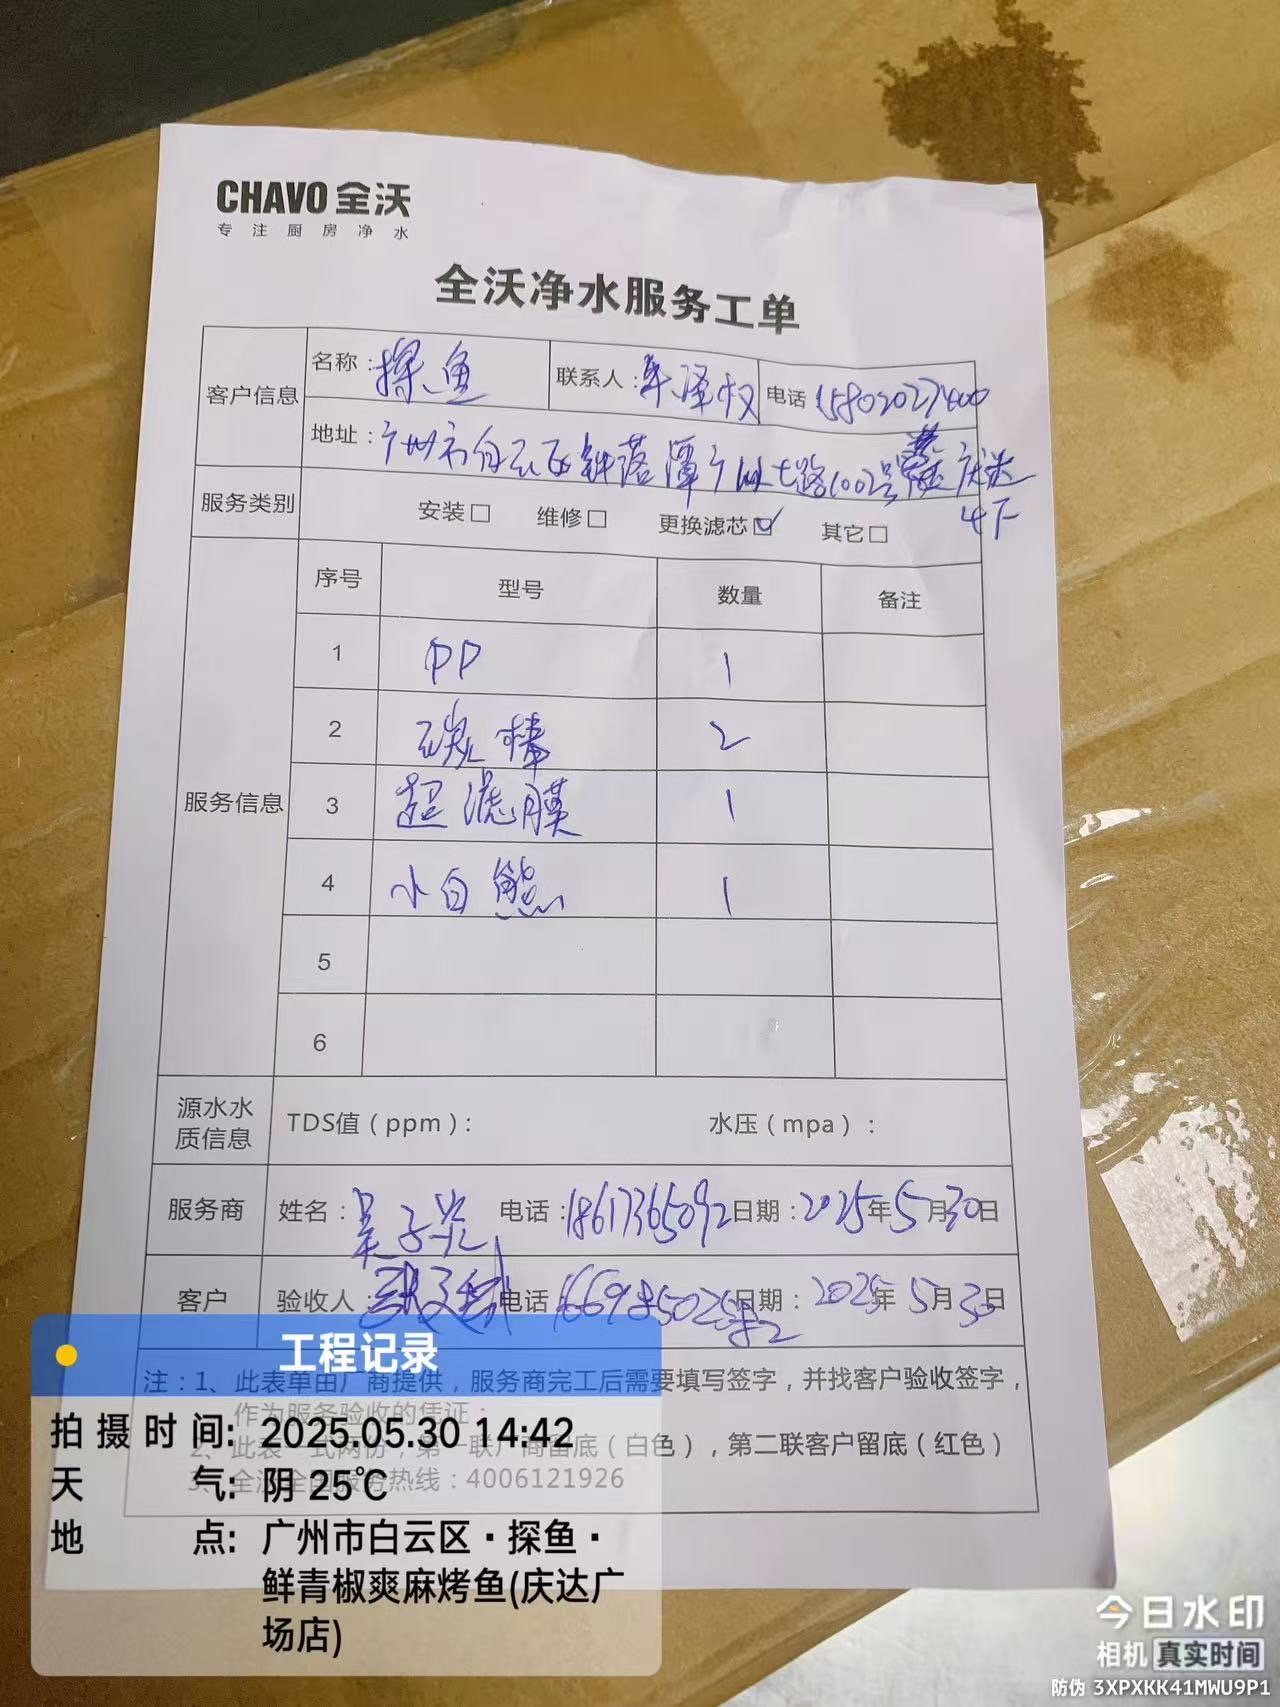 CHAVO 全沃
专注厨房净水
全沃净水服务工单
客户信息 名称：探鱼 联系人：车泽权 电话 15802027400
地址：广州市白云区钟落潭广从七路1002号 庆达
4下
服务类别 安装□ 维修□ 更换滤芯☑ 其它□
服务信息 序号 型号 数量 备注
1 PP 1
2 碳棒 2
3 超滤膜 1
4 小白熊 1
5
6
源水水质信息 TDS值（ppm）： 水压（mpa）：
服务商 姓名：吴子 电话：18617365092 日期：2025年5月30日
客户 验收人 电话 日期：2025年5月30日
注：1、此表单由厂商提供，服务商完工后需要填写签字，并找客户验收签字，
作为服务验收的凭证；
2、此表一式两份，第一联厂商留底（白色），第二联客户留底（红色）
3、全沃全国服务热线：4006121926
工程记录
拍摄时间: 2025.05.30 14:42
天气: 阴 25℃
地点: 广州市白云区·探鱼·
鲜青椒爽麻烤鱼(庆达广
场店)
今日水印
相机 真实时间
防伪 3XPXKK41MWU9P1